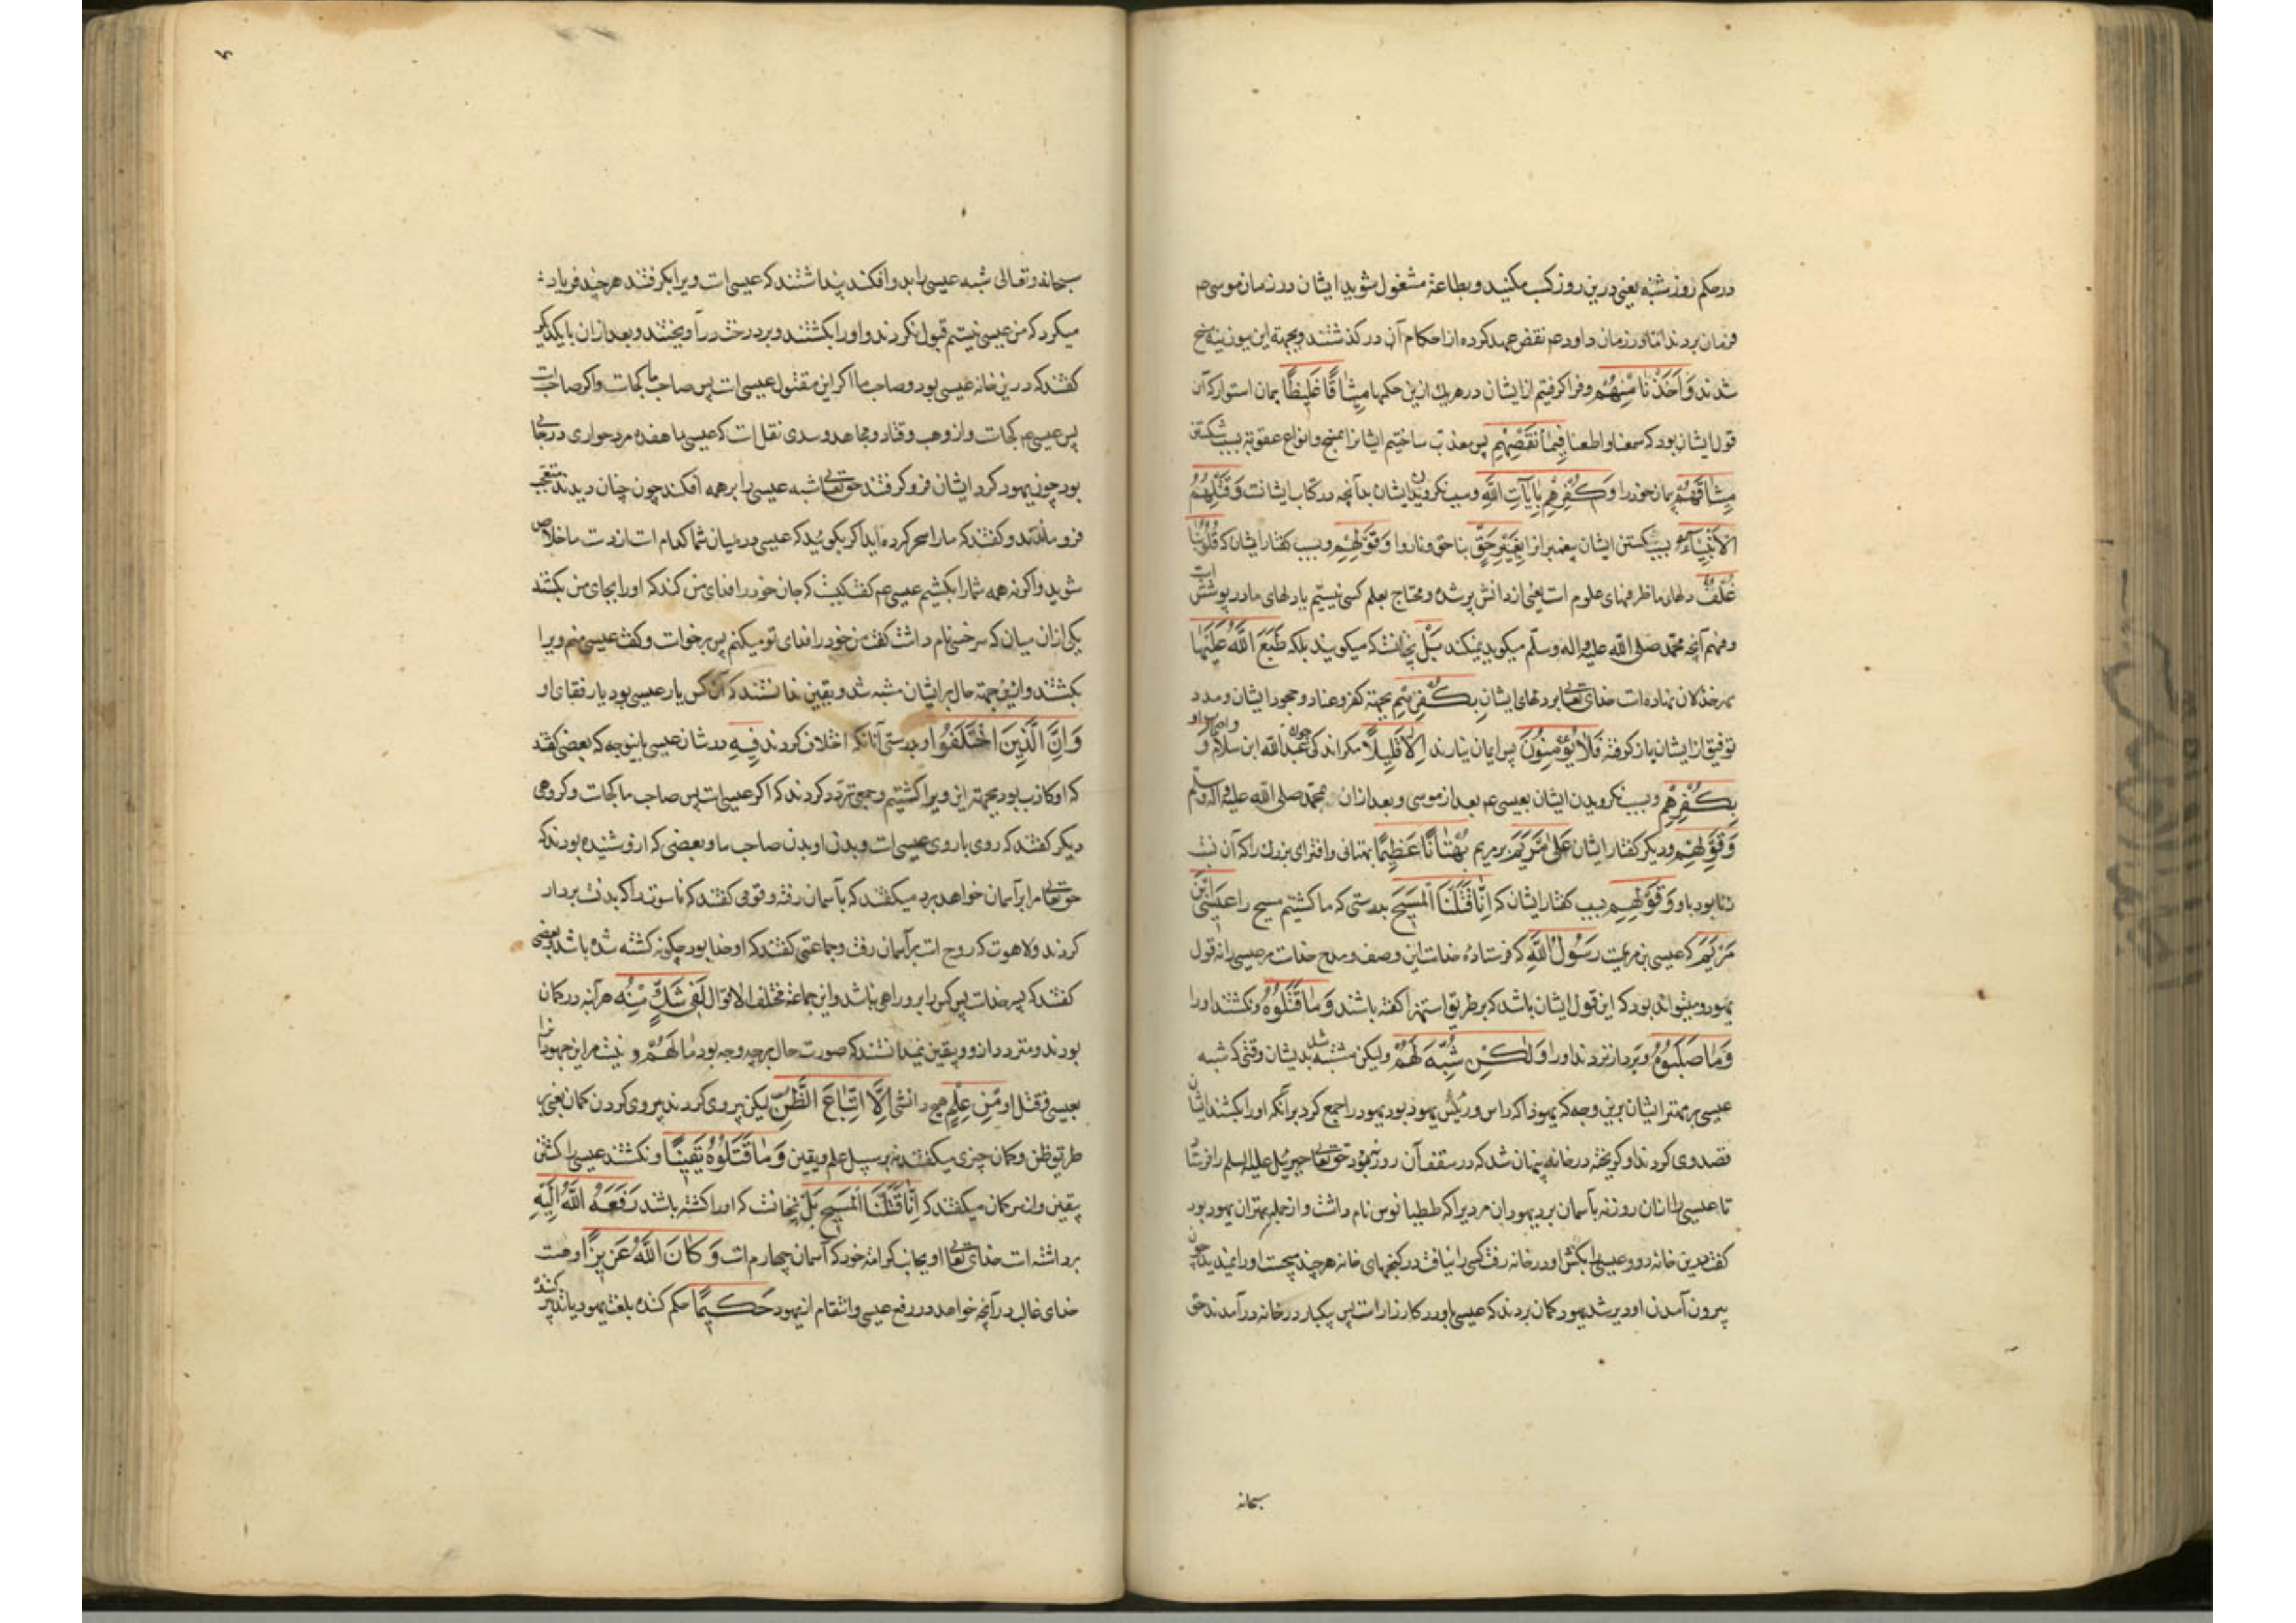 در حکم روز شنبه یعنی درین روز کسب مکنید و بطاعة مشغول شوید ایشان در زمان موسی عم
فرمان بردند اما در زمان داود عم نقض عهد کرده از احکام آن در کذشتند و بجهة این بوزینه مسخ
شدند وَاَخَذْنا مِنْهُمْ وفرا کرفتیم از ایشان در هریک ازین حکمها مِیثاقًا غَلیظًا پیمان استوار که آن
قول ایشان بود که سمعنا واطعنا فَبِما نَقْضِهِمْ پس معذب ساختیم ایشانرا بمسخ وانواع عقوبة بسبب شکستن
مِیثاقَهُمْ پیمان خود را وَکُفْرِهِمْ بِایآتِ اللّٰهِ وبسبب نکرویدن ایشان بدآنچه در کتاب ایشانست وَقَتْلِهِمُ
الْاَنْبِیآءَ وبسبب کشتن ایشان پیغمبرانرا بِغَیْرِ حَقٍّ بناحق وناروا وَقَوْلِهِمْ وبسبب کفتار ایشان که قُلُوبُنا
غُلْفٌ دلهای ما ظرفهای علوم است یعنی از دانش پر شده ومحتاج بعلم کسی نیستیم یا دلهای ما در پوشش است
وفهم آنچه محمد صلی الله علیه واله وسلّم میکوید نمیکند بَلْ نچنانست که میکویند بلکه طَبَعَ اللّٰهُ عَلَیْها
مهر خذلان نهاده است خدای تعالی بر دلهای ایشان بِکُفْرِهِمْ بجهة کفر وعناد وجحود ایشان ومدد
توفیق از ایشان باز کرفته فَلا یُؤْمِنُونَ پس ایمان نیارند اِلّا قَلیلًا مکر اندکی چون عبدالله ابن سلام و واصحاب او
بِکُفْرِهِمْ وبسبب نکرویدن ایشان بعیسی عم بعد از موسی وبعد از آن بمحمّد صلی الله علیه واله وسلم
وَقَوْلِهِمْ ودیکر کفتار ایشان عَلٰی مَرْیَمَ بر مریم بُهْتانًا عَظیمًا بهتانی وافترای بزرک را که آن نسبت
زنا بود باو وَقَوْلِهِمْ بسبب کفتار ایشان که اِنّا قَتَلْنَا الْمَسیحَ بدرستی که ما کشتیم مسیح را عیسَی ابْنَ
مَرْیَمَ که عیسی بن مریمست رَسُولَ اللّٰهِ که فرستاده خداست این وصف ومدح خداست مر عیسی را نه قول
یهود ومیتواند بود که این قول ایشان باشد که بر طریق استهزا کفته باشند وَما قَتَلُوهُ ونکشتند او را
وَما صَلَبُوهُ وبردار نزدند او را وَلٰکِنْ شُبِّهَ لَهُمْ ولیکن مشتبه شد بدیشان وقتی که شبه
عیسی بر مهتر ایشان برین وجه که یهودا که راس ورئیس یهود بود یهود را جمع کرد برآنکه او را بکشند ایشان
قصد وی کردند او کریخته در خانه پنهان شد که در سقف آن روزنه بود حق تعالی جبرئیل علیه السلم را فرستاد
تا عیسی را از آن روزنه بآسمان برد یهودان مردیرا که ططیانوس نام داشت واز جمله مهتران یهود بود
کفت درین خانه رو وعیسی را بکش او در خانه رفت کسی را نیافت در کنجهای خانه هر چند میجست او را نمیدید چون
بیرون آمدن او دیر شد یهود کمان بردند که عیسی با او در کارزار است پس یکبار در خانه در آمدند حق
سبحانه
سبحانه وتعالی شبه عیسی را بدو افکند پنداشتند که عیسی است ویرا بکرفتند هر چند فریاد
میکرد که من عیسی نیستم قبول نکردند واو را بکشتند وبر درخت در آویختند وبعد از آن با یکدیکر
کفتند که درین خانه عیسی بود وصاحب ما اکر این مقتول عیسی است پس صاحب ما کجاست واکر صاحب ماست
پس عیسی عم کجاست واز وهب وقتاده ومجاهد وسدی نقل است که عیسی با هفده مرد حواری در خانه
بود چون یهود کرد ایشان فرو کرفتند حق تعالی شبه عیسی را بر همه افکند چون چنان دیدند متعجب
فرو ماندند وکفتند که ما را سحر کرده اید اکر بکوئید که عیسی در میان شما کدام است از دست ما خلاص
شوید واکر نه همه شما را بکشیم عیسی عم کفت کیست که جان خود را فدای من کند که او را بجای من بکشند
یکی از آن میان که سرخس نام داشت کفت من خود را فدای تو میکنم پس برخواست وکفت عیسی منم ویرا
بکشتند وازین جهة حال بر ایشان مشتبه شد ویقین ندانستند که آن کس یار عیسی بود یا رفقای او
وَاِنَّ الَّذینَ اخْتَلَفُوا وبدرستی آنانکه اختلاف کردند فیهِ در شان عیسی باین وجه که بعضی کفتند
که او کاذب بود بجهة این ویرا کشتیم وجمعی تردد کردند که اکر عیسی است پس صاحب ما کجاست وکروهی
دیکر کفتند که روی با روی عیسی است وبدن او بدن صاحب ما وبعضی که از و شنیده بودند که
حق تعالی مرا بر آسمان خواهد برد میکفتند که بآسمان رفته وقومی کفتند که ناسوت را که بدنست بردار
کردند ولاهوت که روح است بر آسمان رفت وجماعتی کفتند که او خدا بود چکونه کشته شده باشد بعضی
کفتند که پسر خداست پس کس را برو راهی نباشد واین جماعة مختلف الاقوال لَفی شَکٍّ مِنْهُ هر آینه در کمان
بودند ومتردد ازو ویقین نمیدانستند که صورت حال بر چه وجه بود ما لَهُمْ و نیست مر این جهودانرا
بعیسی وقتل او مِنْ عِلْمٍ هیچ دانشی اِلَّا اتِّباعَ الظَّنِّ لیکن پیروی کردند پیروی کردن کمان یعنی بر
طریق ظن وکمان چیزی میکفتند نه بر سبیل علم ویقین وَما قَتَلُوهُ یَقینًا ونکشتند عیسی را کشتن
بیقین واز سر کمان میکفتند که اِنّا قَتَلْنَا الْمَسیحَ بَلْ نچنانست که او را کشته باشند رَفَعَهُ اللّٰهُ اِلَیْهِ
برداشته است خدای تعالی او را بجانب کرامة خود که آسمان چهارم است وَکانَ اللّٰهُ عَزیزًا وهست
خدای غالب در آنچه خواهد در رفع عیسی وانتقام از یهود حَکیمًا حکم کننده بلعنت یهود